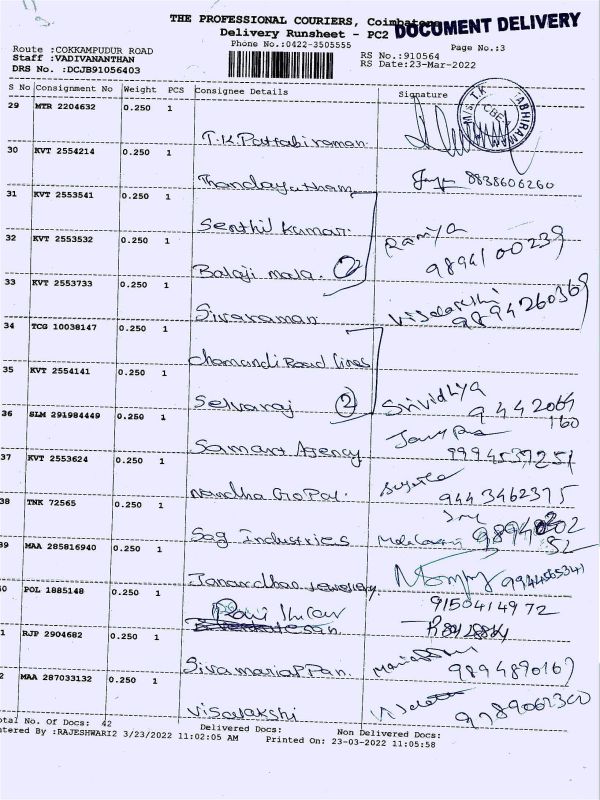 THE PROFESSIONAL COURIERS, Coimbatore
DOCUMENT DELIVERY
Delivery Runsheet - PC2
Phone No.:0422-3505555
Page No.:3
Route :COKKAMPUDUR ROAD
Staff :VADIVANANTHAN
DRS No. :DCJB91056403
RS No.:910564
RS Date:23-Mar-2022
S No Consignment No Weight PCS Consignee Details Signature
29 MTR 2204632 0.250 1
T.K.Pattabiraman
30 KVT 2554214 0.250 1
8838606260
31 KVT 2553541 0.250 1
Senthil Kumar.
32 KVT 2553532 0.250 1
Ramya
Balaji mala. 2
9894100239
33 KVT 2553733 0.250 1
Sivaraman
Visalakshi
9894260369
34 TCG 10038147 0.250 1
Chamandi Road lines
35 KVT 2554141 0.250 1
Selvaraj 2
Srividhya
36 SLM 291984449 0.250 1
9442064
160
Samara Agency
9994537251
37 KVT 2553624 0.250 1
Nandha GoPal.
9443462375
38 TNK 72565 0.250 1
Sag Industries
39 MAA 285816940 0.250 1
Janardhan Jewellery
40 POL 1885148 0.250 1
9150414972
Ravi Kumar
41 RJP 2904682 0.250 1
SivamariaPPan.
9894890167
42 MAA 287033132 0.250 1
Visalakshi
Total No. Of Docs: 42 Delivered Docs: Non Delivered Docs:
Entered By :RAJESHWARI2 3/23/2022 11:02:05 AM Printed On: 23-03-2022 11:05:58